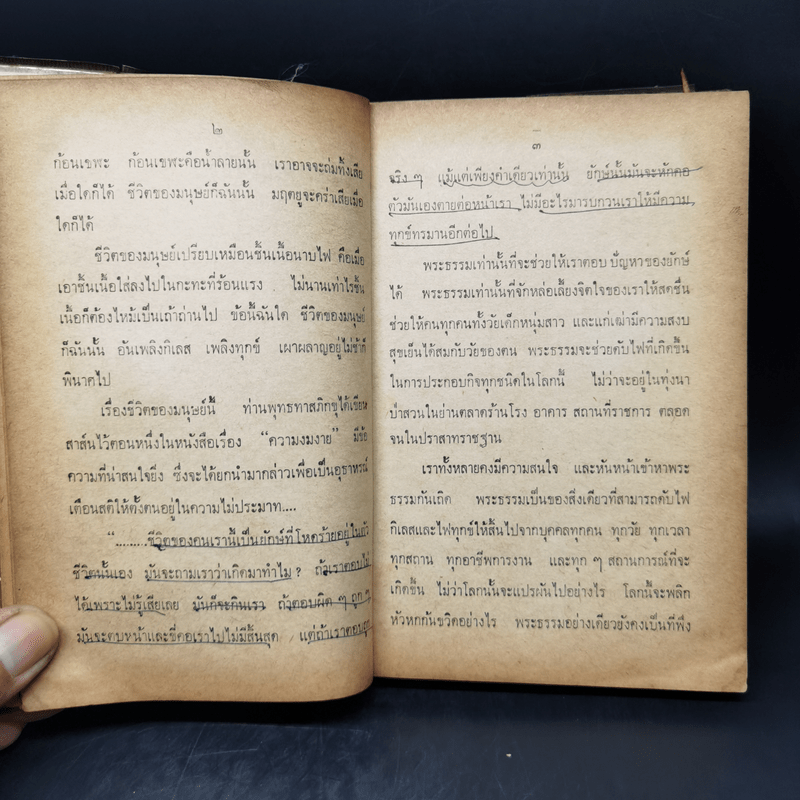 ๒
ก้อนเขฬะ ก้อนเขฬะคือน้ำลายนั้น เราอาจจะถ่มทิ้งเสีย
เมื่อใดก็ได้ ชีวิตของมนุษย์ก็ฉันนั้น มฤตยูจะคร่าเสียเมื่อ
ใดก็ได้
ชีวิตของมนุษย์เปรียบเหมือนชิ้นเนื้อนาบไฟ คือเมื่อ
เอาชิ้นเนื้อใส่ลงไปในกะทะที่ร้อนแรง ไม่นานเท่าไรชิ้น
เนื้อก็ต้องไหม้เป็นเถ้าถ่านไป ข้อนี้ฉันใด ชีวิตของมนุษย์
ก็ฉันนั้น อันเพลิงกิเลส เพลิงทุกข์ เผาผลาญอยู่ไม่ช้าก็
พินาศไป
เรื่องชีวิตของมนุษย์นี้ ท่านพุทธทาสภิกขุได้เขียน
สาส์นไว้ตอนหนึ่งในหนังสือเรื่อง “ความงมงาย” มีข้อ
ความที่น่าสนใจยิ่ง ซึ่งจะได้ยกนำมากล่าวเพื่อเป็นอุธาหรณ์
เตือนสติให้ตั้งตนอยู่ในความไม่ประมาท....
“........ชีวิตของคนเรานี้เป็นยักษ์ที่โหดร้ายอยู่ในตัว
ชีวิตนั้นเอง มันจะถามเราว่าเกิดมาทำไม? ถ้าเราตอบไม่
ได้เพราะไม่รู้เสียเลย มันก็จะกินเรา ถ้าตอบผิด ๆ ถูก ๆ
มันจะตบหน้าและขี่คอเราไปไม่มีสิ้นสุด แต่ถ้าเราตอบถูก
๓
จริง ๆ แม้แต่เพียงคำเดียวเท่านั้น ยักษ์นั้นมันจะหักคอ
ตัวมันเองตายต่อหน้าเรา ไม่มีอะไรมารบกวนเราให้มีความ
ทุกข์ทรมานอีกต่อไป
พระธรรมเท่านั้นที่จะช่วยให้เราตอบ ปัญหาของยักษ์
ได้ พระธรรมเท่านั้นที่จักหล่อเลี้ยงจิตใจของเราให้สดชื่น
ช่วยให้คนทุกคนทั้งวัยเด็กหนุ่มสาว และแก่เฒ่ามีความสงบ
สุขเย็นได้สมกับวัยของตน พระธรรมจะช่วยดับไฟที่เกิดขึ้น
ในการประกอบกิจทุกชนิดในโลกนี้ ไม่ว่าจะอยู่ในทุ่งนา
ป่าสวนในย่านตลาดร้านโรง อาคาร สถานที่ราชการ ตลอด
จนในปราสาทราชฐาน
เราทั้งหลายคงมีความสนใจ และหันหน้าเข้าหาพระ
ธรรมกันเถิด พระธรรมเป็นของสิ่งเดียวที่สามารถดับไฟ
กิเลสและไฟทุกข์ให้สิ้นไปจากบุคคลทุกคน ทุกวัย ทุกเวลา
ทุกสถาน ทุกอาชีพการงาน และทุก ๆ สถานการณ์ที่จะ
เกิดขึ้น ไม่ว่าโลกนั้นจะแปรผันไปอย่างไร โลกนี้จะพลิก
หัวหกกันขวิดอย่างไร พระธรรมอย่างเดียวยังคงเป็นที่พึ่ง